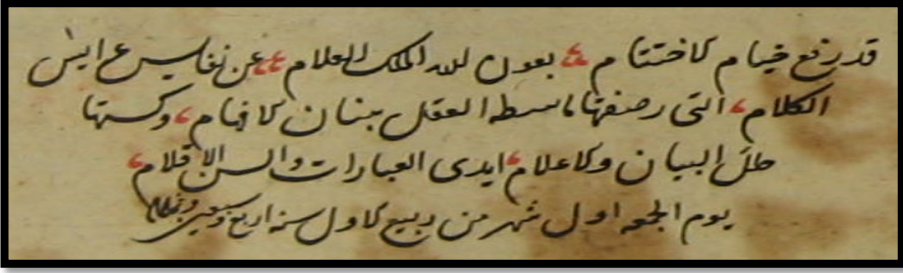 قد رفع خيام الاختتام بعون الله الملك العلام عن نفايس عرايس
الكلام التي رصفتها ماسطه العقل ببنان الافهام وكستها
حلل البيان والاعلام ايدى العبارات والسن الاقلام
يوم الجمعه اول شهر من ربيع الاول سنه اربع وسبعين وثمانمائة